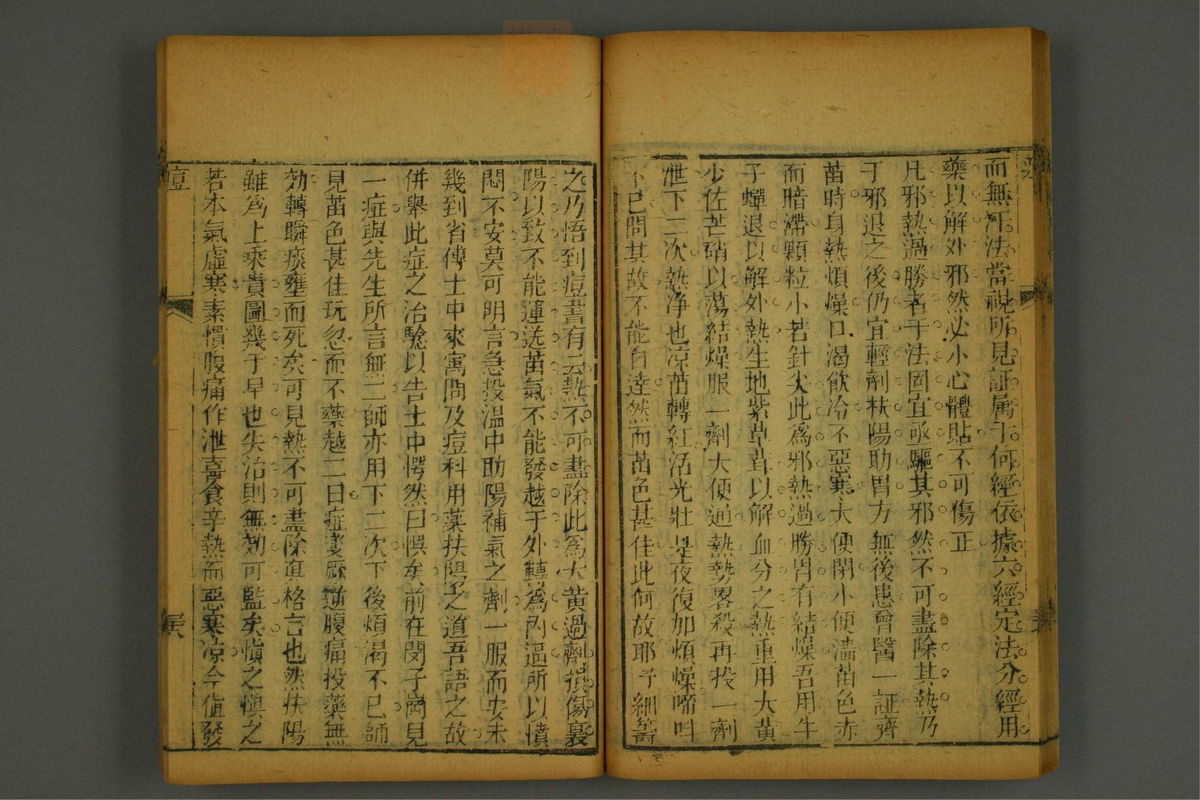 而無汗法當視所見証属于何經依據六經定法分經用
藥以解外邪然必小心體貼不可傷正
凡邪熱過勝者于法固宜亟驅其邪然不可盡除其熱乃
于邪退之後仍宜輕劑扶陽助胃方無後患曾醫一証齊
苗時身熱煩燥口渴飲冷不惡寒大便閉小便濇苗色赤
而暗滯顆粒小若針尖此爲邪熱過勝胃有結燥吾用牛
子蟬退以解外熱生地紫草茸以解血分之熱重用大黃
少佐芒硝以蕩結燥服一劑大便通熱勢畧殺再投一劑
泄下二次熱净也凉苗轉紅活光壯是夜復加煩燥啼呌
不已問其故不能自達然而苗色甚佳此何故耶予細籌
之乃悟到痘書有云熱不可盡除此爲大黃過劑損傷裏
陽以致不能運送苗氣不能發越于外轉爲內逼所以憤
悶不安莫可明言急投溫中助陽補氣之劑一服而安未
幾到省傅士中來寓問及痘科用藥扶陽之道吾語之故
併舉此症之治驗以告士中愕然曰悞矣前在閔子崗見
一症與先生所言無二師亦用下二次下後煩渴不已誦
見苗色甚佳玩忽而不藥越二日症變厥逆腹痛投藥無
効轉瞬痰壅而死矣可見熱不可盡除眞格言也然扶陽
雖爲上乘貴圖幾于早也失治則無効可監矣愼之愼之
若本氣虛寒素慣腹痛作泄喜食辛熱而惡寒凉今值發
痘